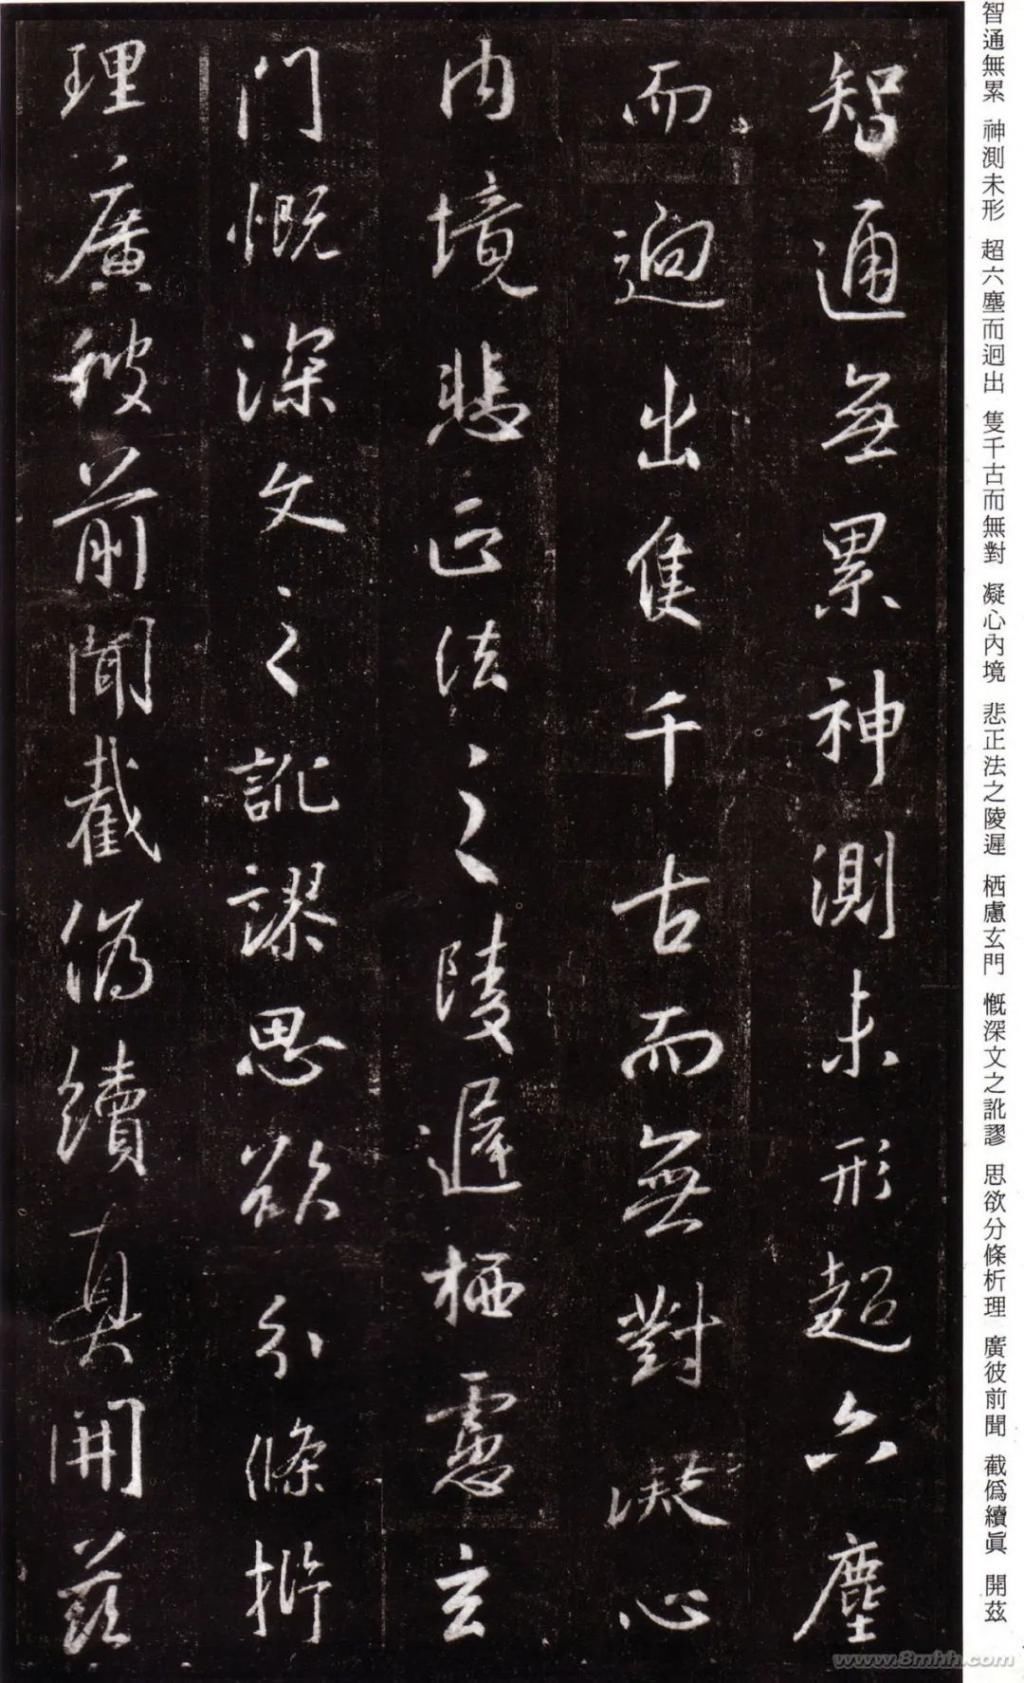 智通無累 神測未形 超六塵而迥出 隻千古而無對 凝心內境 悲正法之陵遲 栖慮玄門 慨深文之訛謬 思欲分條析理 廣彼前聞 截僞續眞 開茲
智通無累神測未形超六塵
而迥出隻千古而無對凝心
內境悲正法之陵遲栖慮玄
門慨深文之訛謬思欲分條析
理廣彼前聞截偽續真開茲
www.8mhh.com